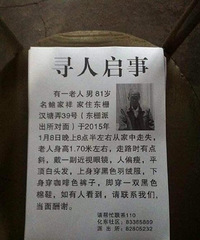 寻人启事
有一老人 男 81岁
名翰家祥 家住东栅
汉塘弄39号（东栅派
出所对面）于2015年
1月8日晚上8点半左右从家中走失,
老人身高1.70米左右, 走路时有点
斜, 戴一副近视眼镜, 人偏瘦, 平
顶白头发, 上身穿黑色羽绒服, 下
身穿咖啡色裤子, 脚穿一双黑色
棉鞋, 如有人看到, 请联系我们,
当面酬谢。
请帮忙联系110
83385889
派出所 82805232